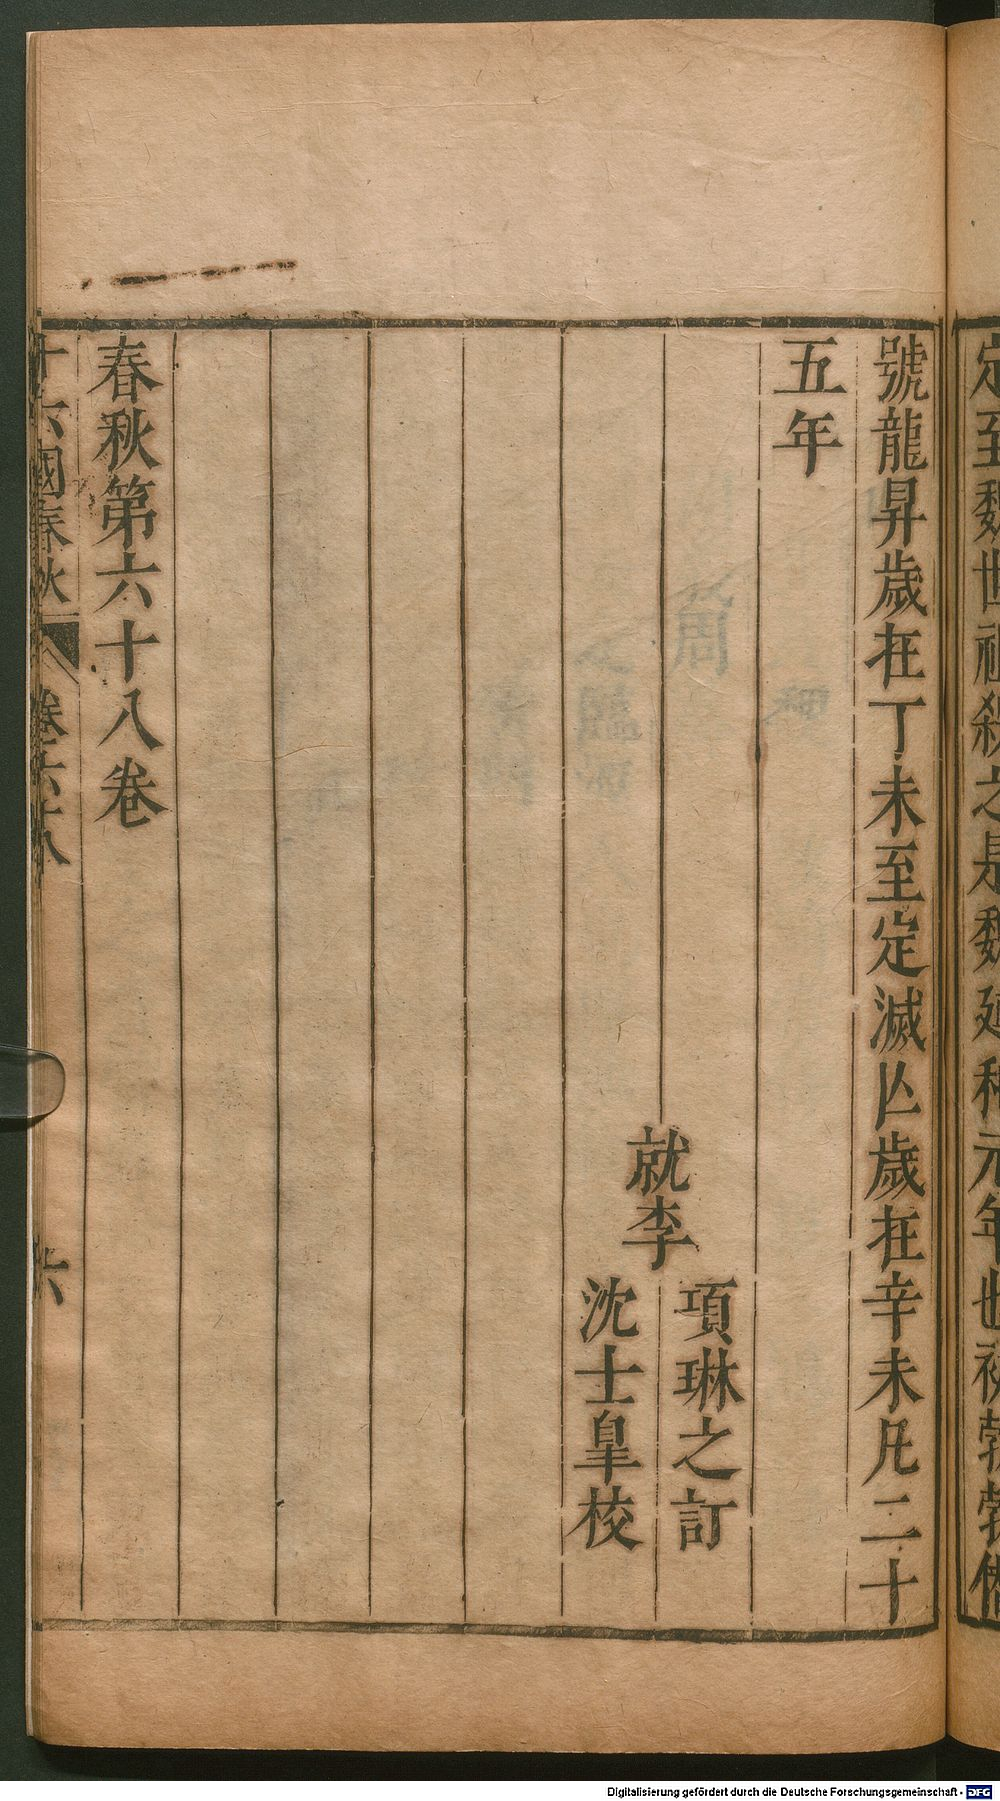 定至魏世祖殺之是魏延和元年也初勃勃僭
號龍昇歲在丁未至定滅亾歲在辛未凡二十
五年
就李
項琳之訂
沈士皐校
春秋第六十八卷
十六國春秋 卷六十八 六
Digitalisierung gefördert durch die Deutsche Forschungsgemeinschaft - DFG